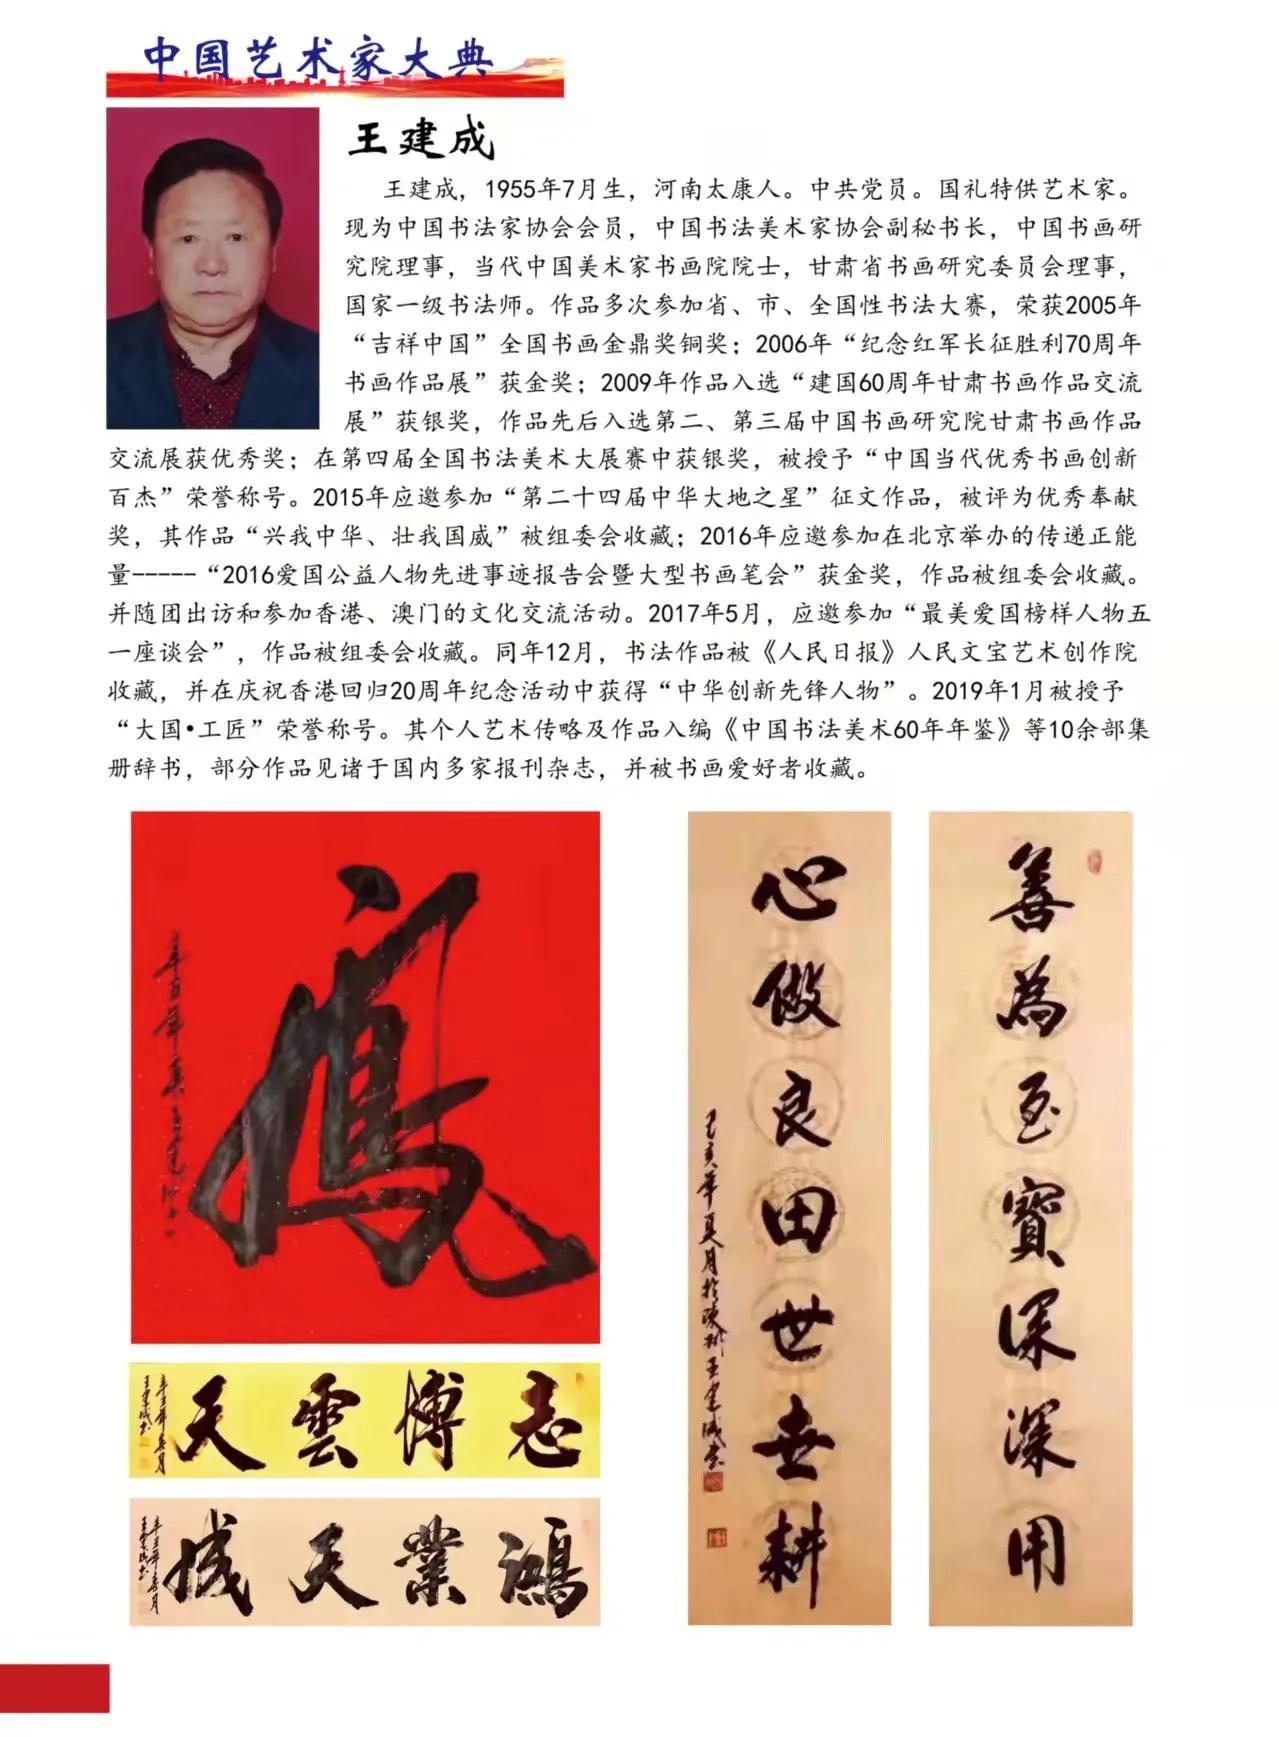 中国艺术家大典
王建成
王建成，1955年7月生，河南太康人。中共党员。国礼特供艺术家。
现为中国书法家协会会员，中国书法美术家协会副秘书长，中国书画研
究院理事，当代中国美术家书画院院士，甘肃省书画研究委员会理事，
国家一级书法师。作品多次参加省、市、全国性书法大赛，荣获2005年
“吉祥中国”全国书画金鼎奖铜奖；2006年“纪念红军长征胜利70周年
书画作品展”获金奖；2009年作品入选“建国60周年甘肃书画作品交流
展”获银奖，作品先后入选第二、第三届中国书画研究院甘肃书画作品
交流展获优秀奖；在第四届全国书法美术大展赛中获银奖，被授予“中国当代优秀书画创新
百杰”荣誉称号。2015年应邀参加“第二十四届中华大地之星”征文作品，被评为优秀奉献
奖，其作品“兴我中华、壮我国威”被组委会收藏；2016年应邀参加在北京举办的传递正能
量-----“2016爱国公益人物先进事迹报告会暨大型书画笔会”获金奖，作品被组委会收藏。
并随团出访和参加香港、澳门的文化交流活动。2017年5月，应邀参加“最美爱国榜样人物五
一座谈会”，作品被组委会收藏。同年12月，书法作品被《人民日报》人民文宝艺术创作院
收藏，并在庆祝香港回归20周年纪念活动中获得“中华创新先锋人物”。2019年1月被授予
“大国•工匠”荣誉称号。其个人艺术传略及作品入编《中国书法美术60年年鉴》等10余部集
册辞书，部分作品见诸于国内多家报刊杂志，并被书画爱好者收藏。
志博雲天
辛丑年夏月
王建成书
鴻業天成
辛丑年春月
王建成书
善為至寶深深用
心做良田世世耕
己亥年夏月於陇州王建成書